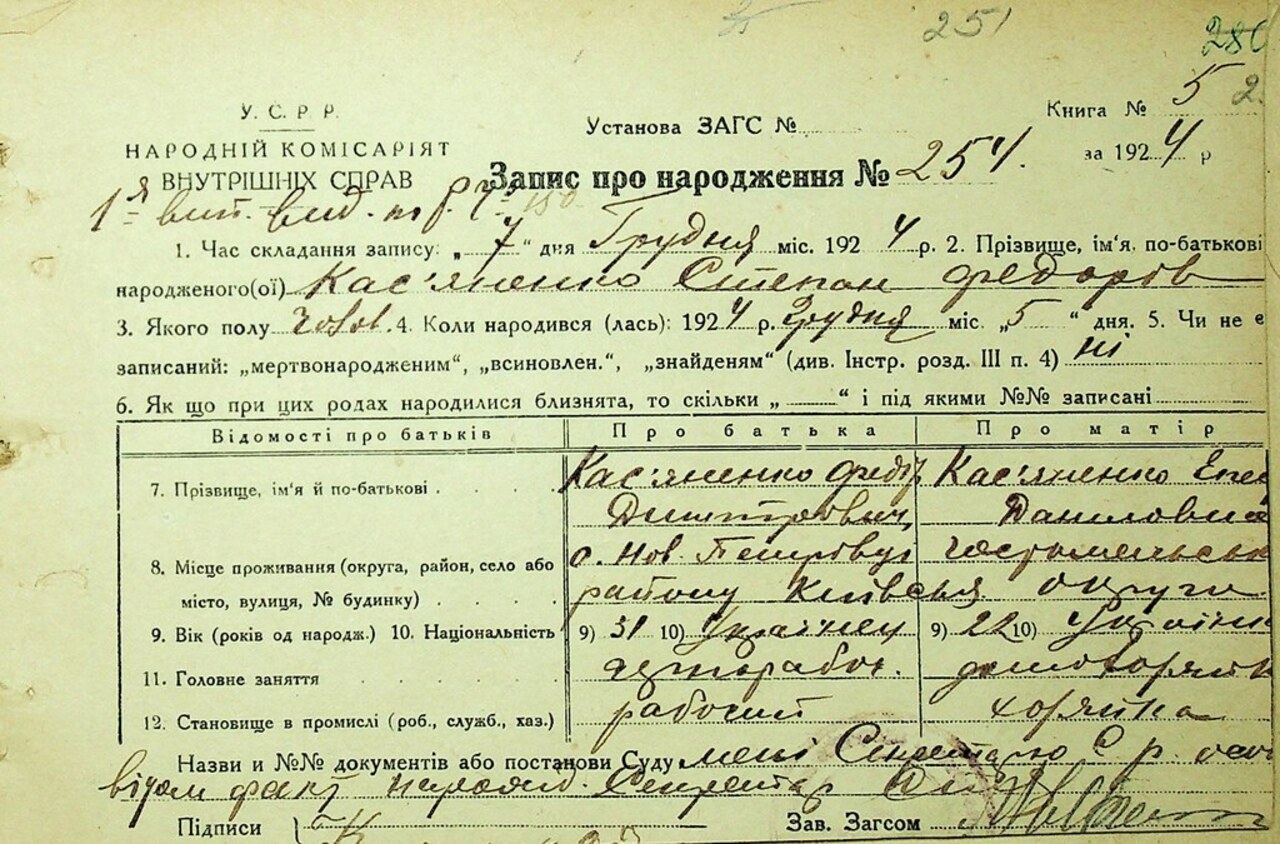 251
280
У. С. Р Р.
Книга № 5 2
Установа ЗАГС №
НАРОДНІЙ КОМІСАРІЯТ
за 1924 р
ВНУТРІШНІХ СПРАВ
Запис про народження № 254.
1. Час складання запису: „ 7 “ дня Грудня міс. 1924 р. 2. Прізвище, ім'я, по-батькові
народженого(ої) Кас'яненко Степан Федорів
3. Якого полу чолов. 4. Коли народився (лась): 1924 р. Грудня міс. „5 “ дня. 5. Чи не є
записаний: „мертвонародженим“, „всиновлен.“, „знайденям“ (див. Інстр. розд. III п. 4) ні
6. Як що при цих родах народилися близнята, то скільки „ “ і під якими №№ записані
Відомості про батьків Про батька Про матір
7. Прізвище, ім'я й по-батькові . . . . Кас'яненко Федір Кас'яненко
Дмитрович, Даниловна
8. Місце проживання (округа, район, село або с. Нов. Петрівці Гостомельськ
місто, вулиця, № будинку) . . . . району Київськ. округи
9. Вік (років од народж.) 10. Національність 9) 31 10) Українец 9) 22 10) Українк
11. Головне заняття . . . . .
12. Становище в промислі (роб., служб., хаз.) рабочий хозяйка
Назви и №№ документів або постанови Суду мені Секретарю С р.
відом факт народж. Секретар
Підписи
Зав. Загсом